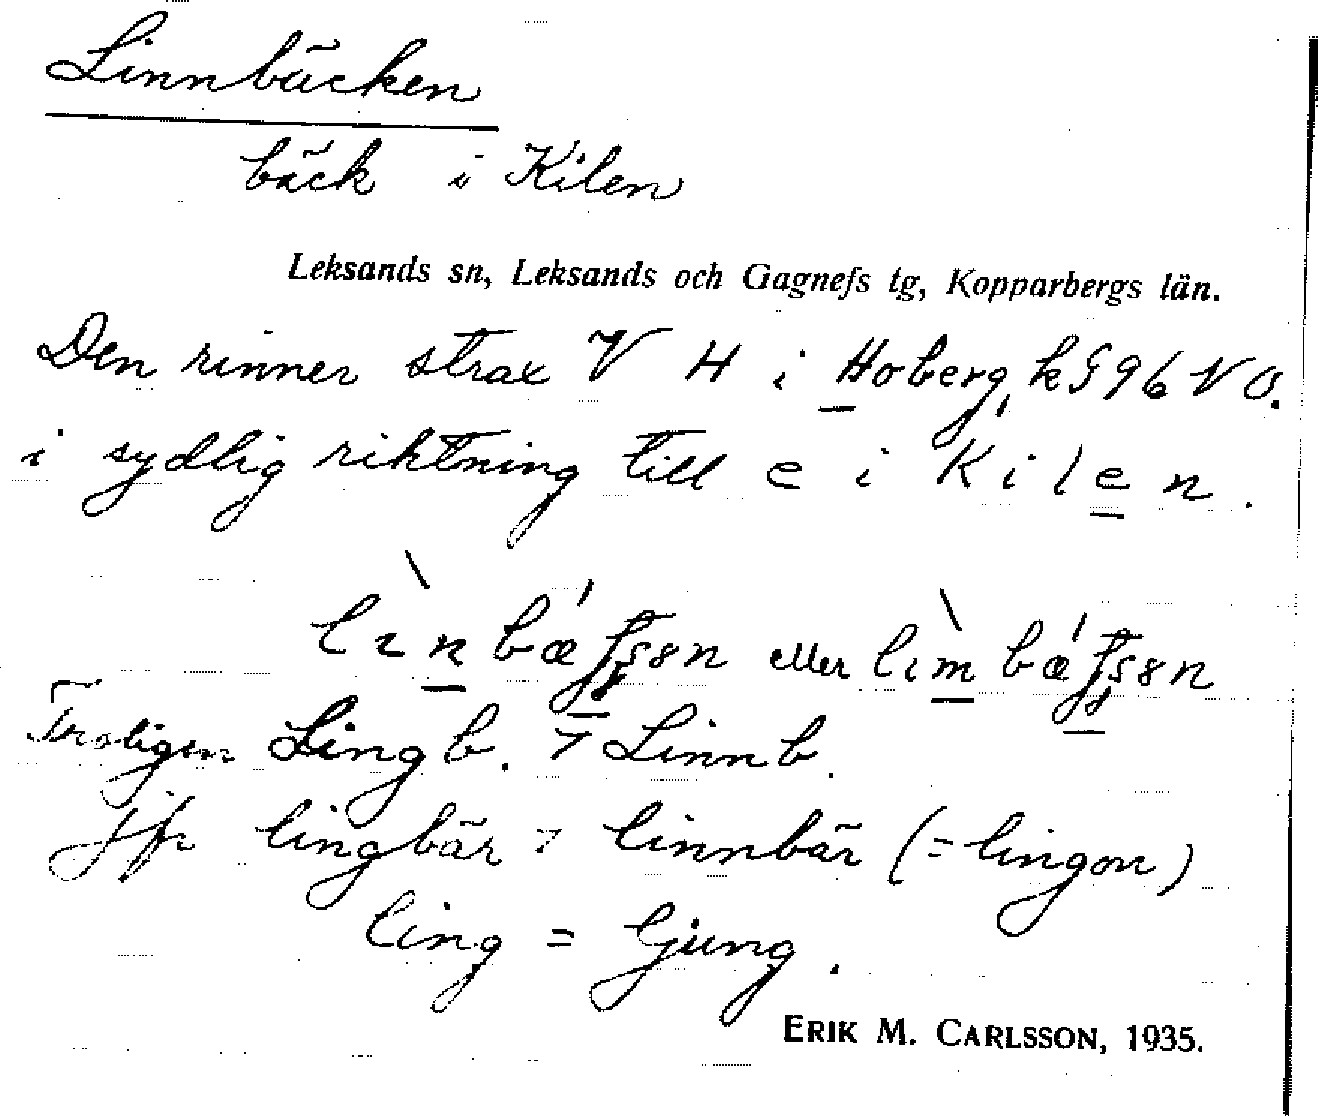 Linnbäcken
bäck i Kilen
Leksands sn, Leksands och Gagnefs tg, Kopparbergs län.
Den rinner strax V H i Hoberg, k§96 NO.
i sydlig riktning till e i Kilen.
eller
Troligen Lingb. > Linnb.
jfr lingbär > linnbär (= lingon)
ling = ljung.
ERIK M. CARLSSON, 1935.